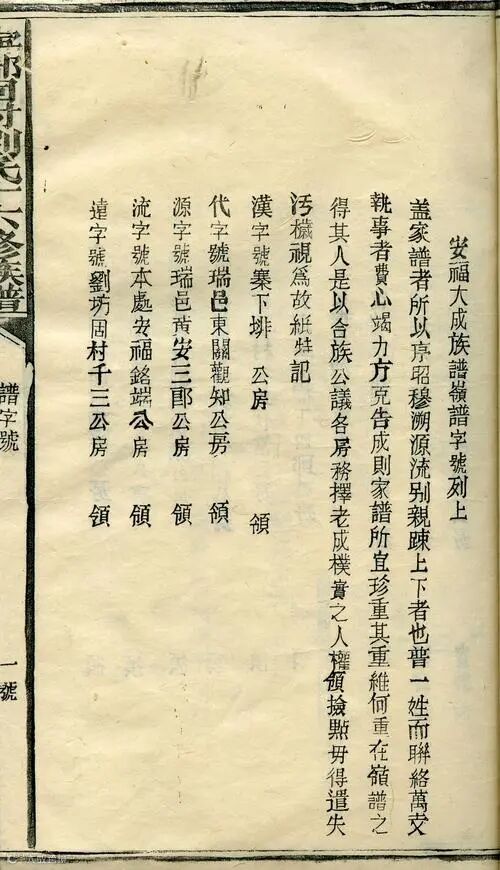 安福大成族譜嶺譜字號列上
盖家譜者所以序昭穆溯源流别親踈上下者也普一姓而聯絡萬支
執事者費心竭力方克告成則家譜所宜珍重其重維何重在嶺譜之
得其人是以合族公議各房務擇老成樸實之人權領撿㸃毋得遣失
污穢視爲故紙特記
漢字號寨下排 公房 領
代字號瑞邑東關觀知公房 領
源字號瑞邑黄安三郎公房 領
流字號本處安福銘端公房 領
遠字號劉坊固村千三公房 領
劉氏六修族譜
譜字號
一號